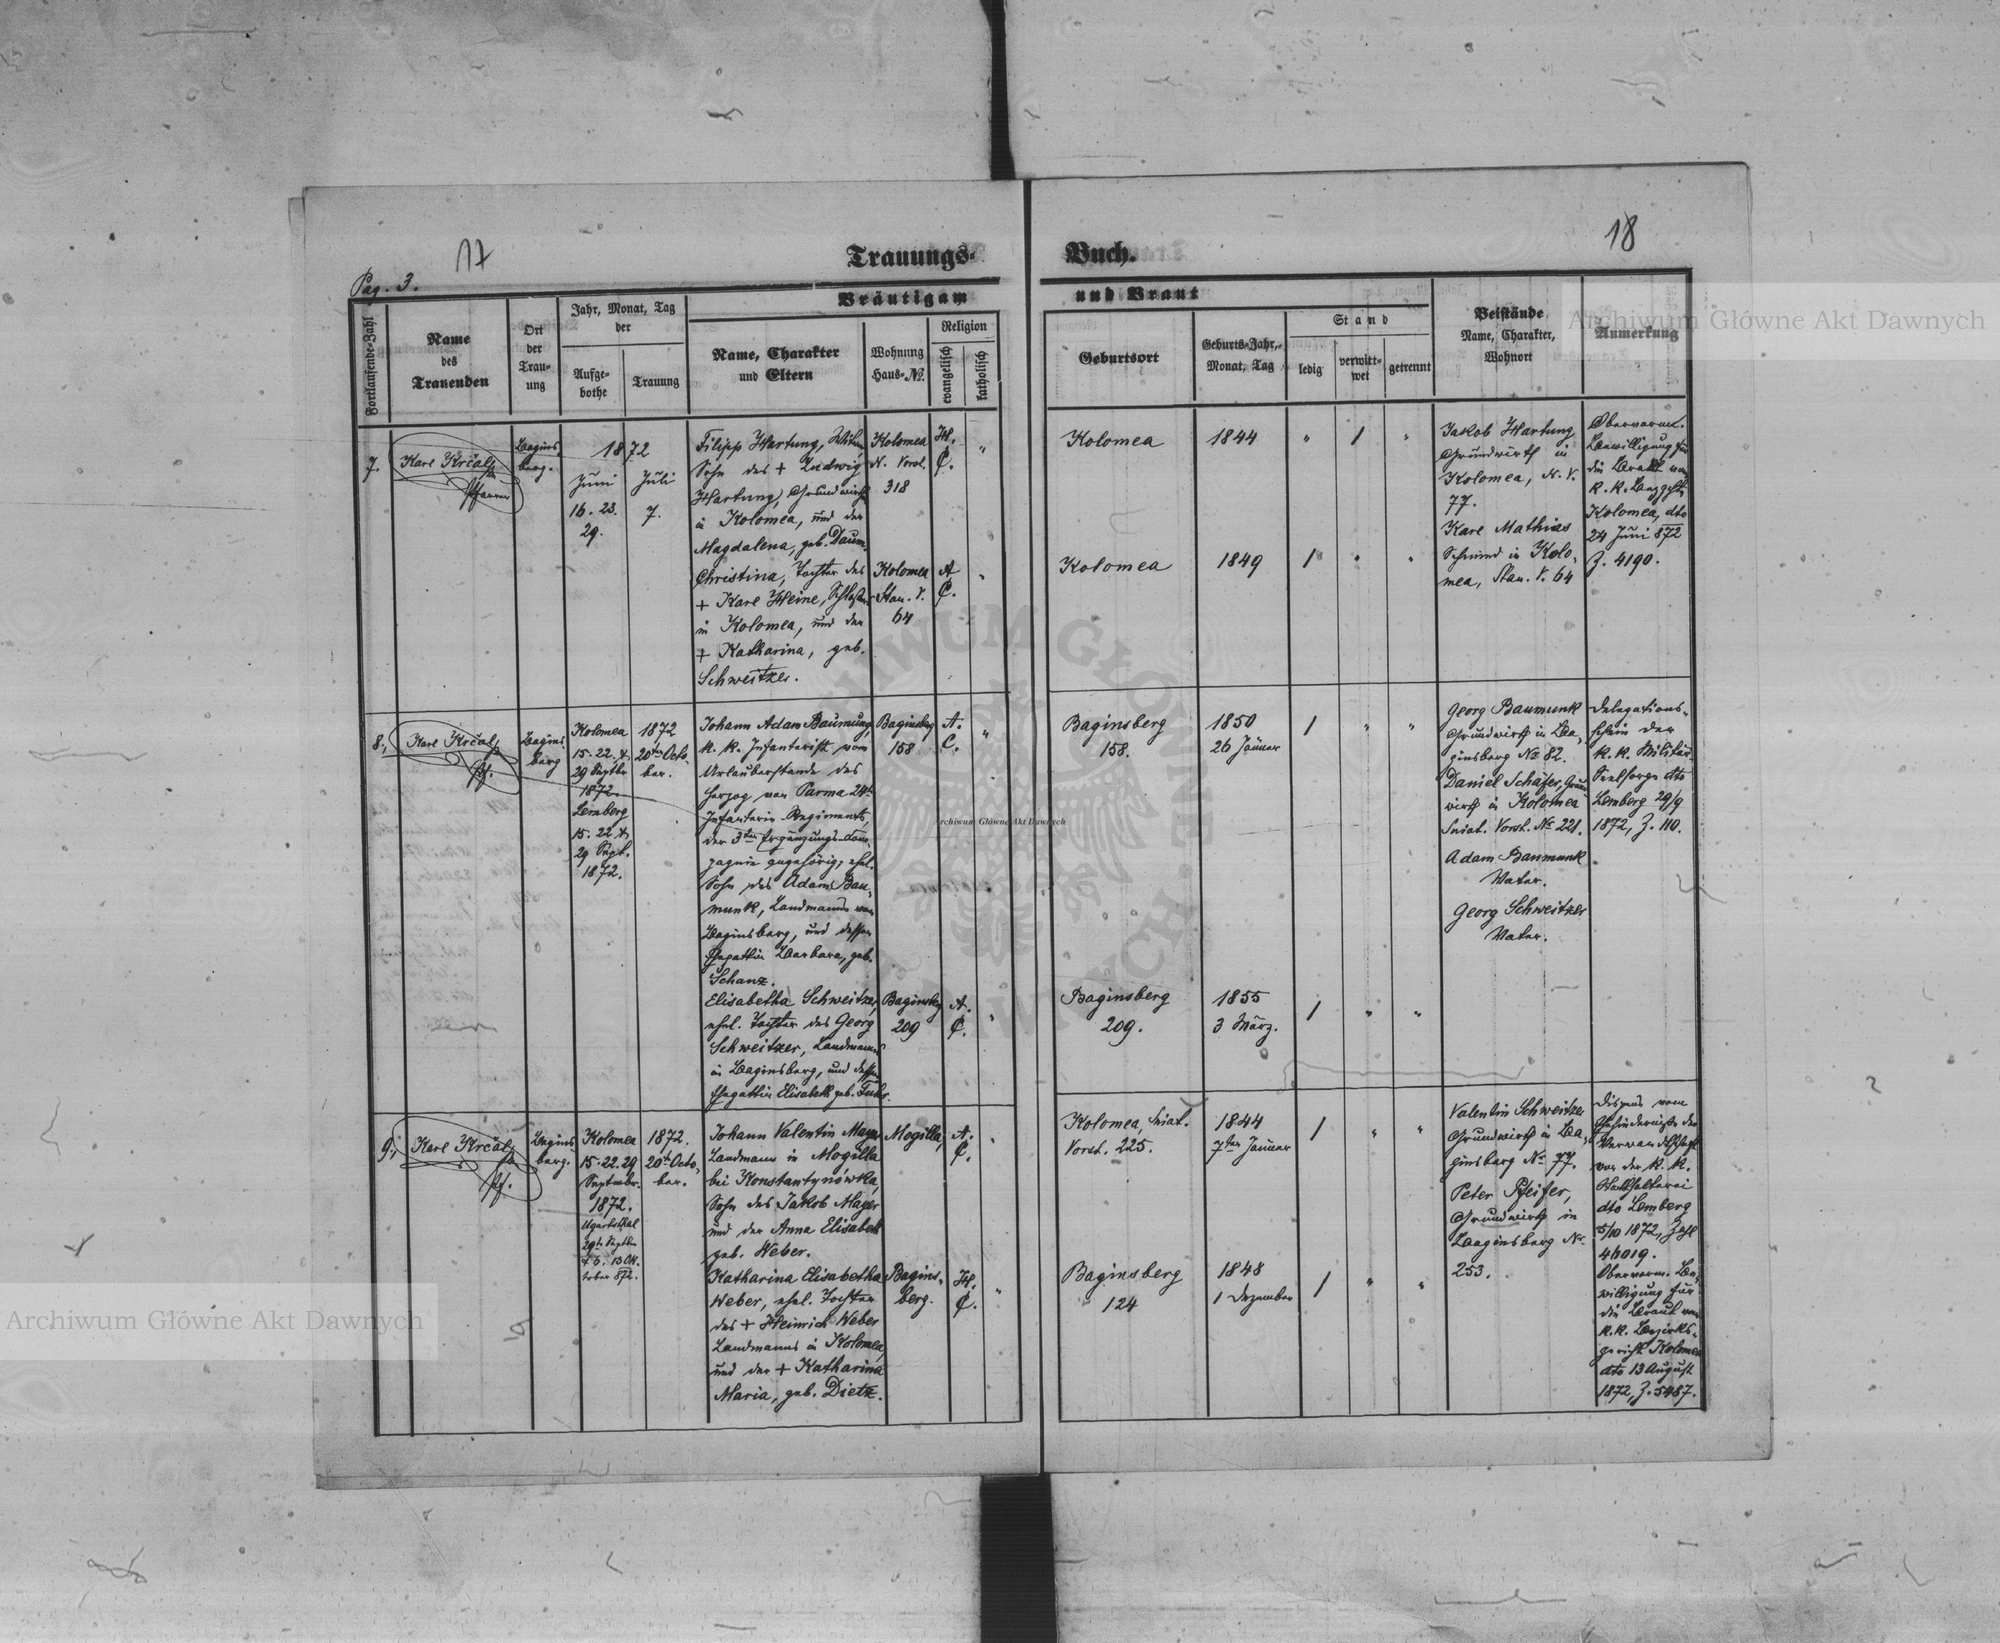 17
18
Trauungs-
Buch.
Pag. 3.
Bräutigam
und Braut
Fortlaufende-Zahl
Name
des
Trauenden
Ort
der
Trau-
ung
Jahr, Monat, Tag
der
Aufge-
bothe
Trauung
Name, Charakter
und Eltern
Wohnung
Haus-No.
Religion
evangelisch
katholisch
Geburtsort
Geburts-Jahr,
Monat, Tag
Stand
ledig
verwitt-
wet
getrennt
Beistände
Name, Charakter,
Wohnort
Anmerkung
7.
Karl Krčal
Pfarrer
Bagins
berg.
1872
Juni
16. 23.
29.
Juli
7.
Filipp Hartung, Witwer
Sohn des + Ludwig
Hartung, Grundwirth
in Kolomea, und der
Magdalena, geb. Daum.
Kolomea
N. Vorst.
318
H.
C.
"
Kolomea
1844
"
1
"
Christina, Tochter des
+ Karl Heine, Schlosser
in Kolomea, und der
+ Katharina, geb.
Schweitzer.
Kolomea
Stan. V.
64
A
C.
"
Kolomea
1849
1
"
"
Jakob Hartung
Grundwirth in
Kolomea, N. V.
77.
Karl Mathias
Schmied in Kolo-
mea, Stan. V. 64
Obervorm.
Bewilligung für
die Braut vom
k. k. Bezgcht
Kolomea, dto
24 Juni 872
Z. 4190.
8.,
Karl Krčal
Pf.
Bagins
berg
Kolomea
15. 22. &
29 Septbr
1872.
Lemberg
15. 22 &
29 Sept.
1872.
1872
20ter Octo-
ber.
Johann Adam Baumung,
k. k. Infanterist vom
Urlauberstande des
Herzog von Parma 24t
Infanterie Regiments,
der 3ten Ergänzungs-Com-
pagnie zugehörig, ehel.
Sohn des Adam Bau-
munk, Landmanns von
Baginsberg, und dessen
Ehegattin Barbara, geb.
Schanz.
Baginsbg
158
A.
C.
"
Baginsberg
158.
1850
26 Jänner
1
"
"
Elisabetha Schweitzer,
ehel. Tochter des Georg
Schweitzer, Landmanns
in Baginsberg, und dessen
Ehegattin Elisabeth geb. Fuhr.
Baginsbg
209
A.
C.
"
Baginsberg
209.
1855
3 März.
1
"
"
Georg Baumunk
Grundwirth in Ba-
ginsberg No 82.
Daniel Schäfer, Grund
wirth in Kolomea
Sniat. Vorst. No 221.
Adam Baumunk
Vater.
Georg Schweitzer
Vater.
Delegations-
schein der
k. k. Militär
Seelsorge dto
Lemberg 29/9
1872, Z. 110.
9.,
Karl Krčal
Pf.
Bagins
berg.
Kolomea
15. 22. 29
Septmbr.
1872.
Ugartsthal
29t Septbr
& 6. 13 Ok.
tober 872.
1872.
20t Octo-
ber.
Johann Valentin Mayer
Landmann in Mogilla
bei Konstantynówka,
Sohn des Jakob Mayer
und der Anna Elisabeth
geb. Weber.
Mogilla,
A.
C.
"
Kolomea, Sniat.
Vorst. 225.
1844
7ter Jänner
1
"
"
Katharina Elisabetha
Weber, ehel. Tochter
des + Heinrich Weber
Landmanns in Kolomea,
und der + Katharina
Maria, geb. Dietz.
Bagins-
berg.
H.
C.
"
Baginsberg
124
1848
1 Dezember
1
"
"
Valentin Schweitzer
Grundwirth in Ba-
ginsberg No 77.
Peter Pfeifer,
Grundwirth in
Baginsberg No
253.
Dispens vom
Ehehinderniße der
Verwandtschaft
von der k. k.
Statthalterei
dto Lemberg
5/10 1872, Zahl
46019.
Obervorm. Be-
willigung für
die Braut vom
k. k. Bezirks-
gericht Kolomea
dto 13 August
1872, Z. 5487.
Archiwum Główne Akt Dawnych
Archiwum Główne Akt Dawnych
Archiwum Główne Akt Dawnych